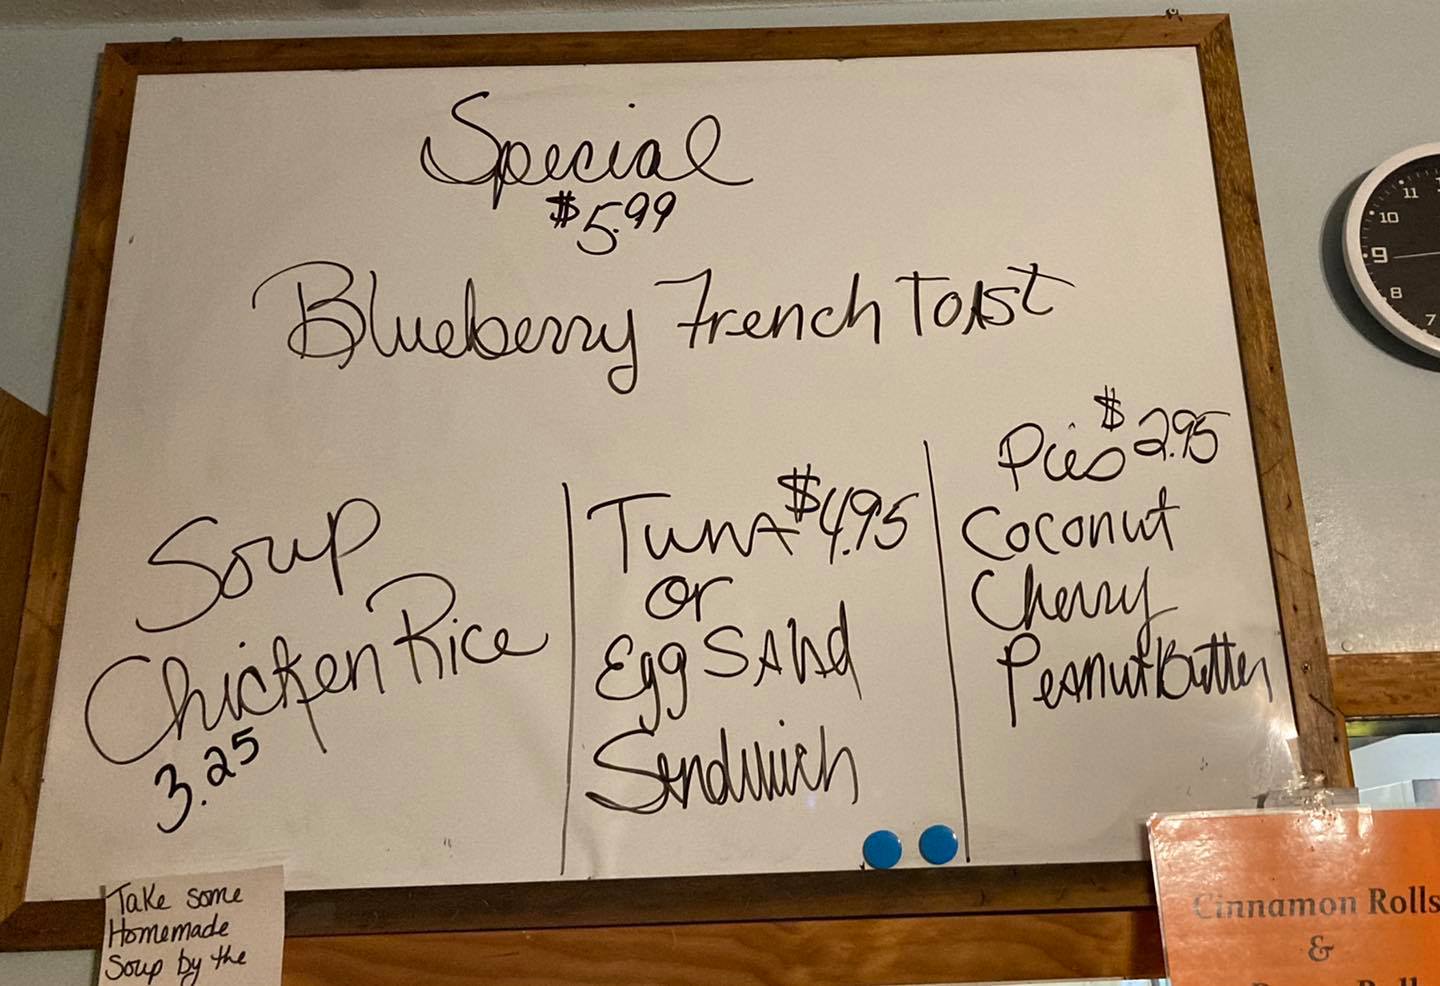 Special
$5.99
Blueberry French Toast
Soup
Chicken Rice
3.25
Tuna $4.95
or
Egg Salad
Sandwich
Pies $2.95
Coconut
Cherry
Peanut Butter
11
10
9
8
7
Take some
Homemade
Soup by the
Cinnamon Rolls
&